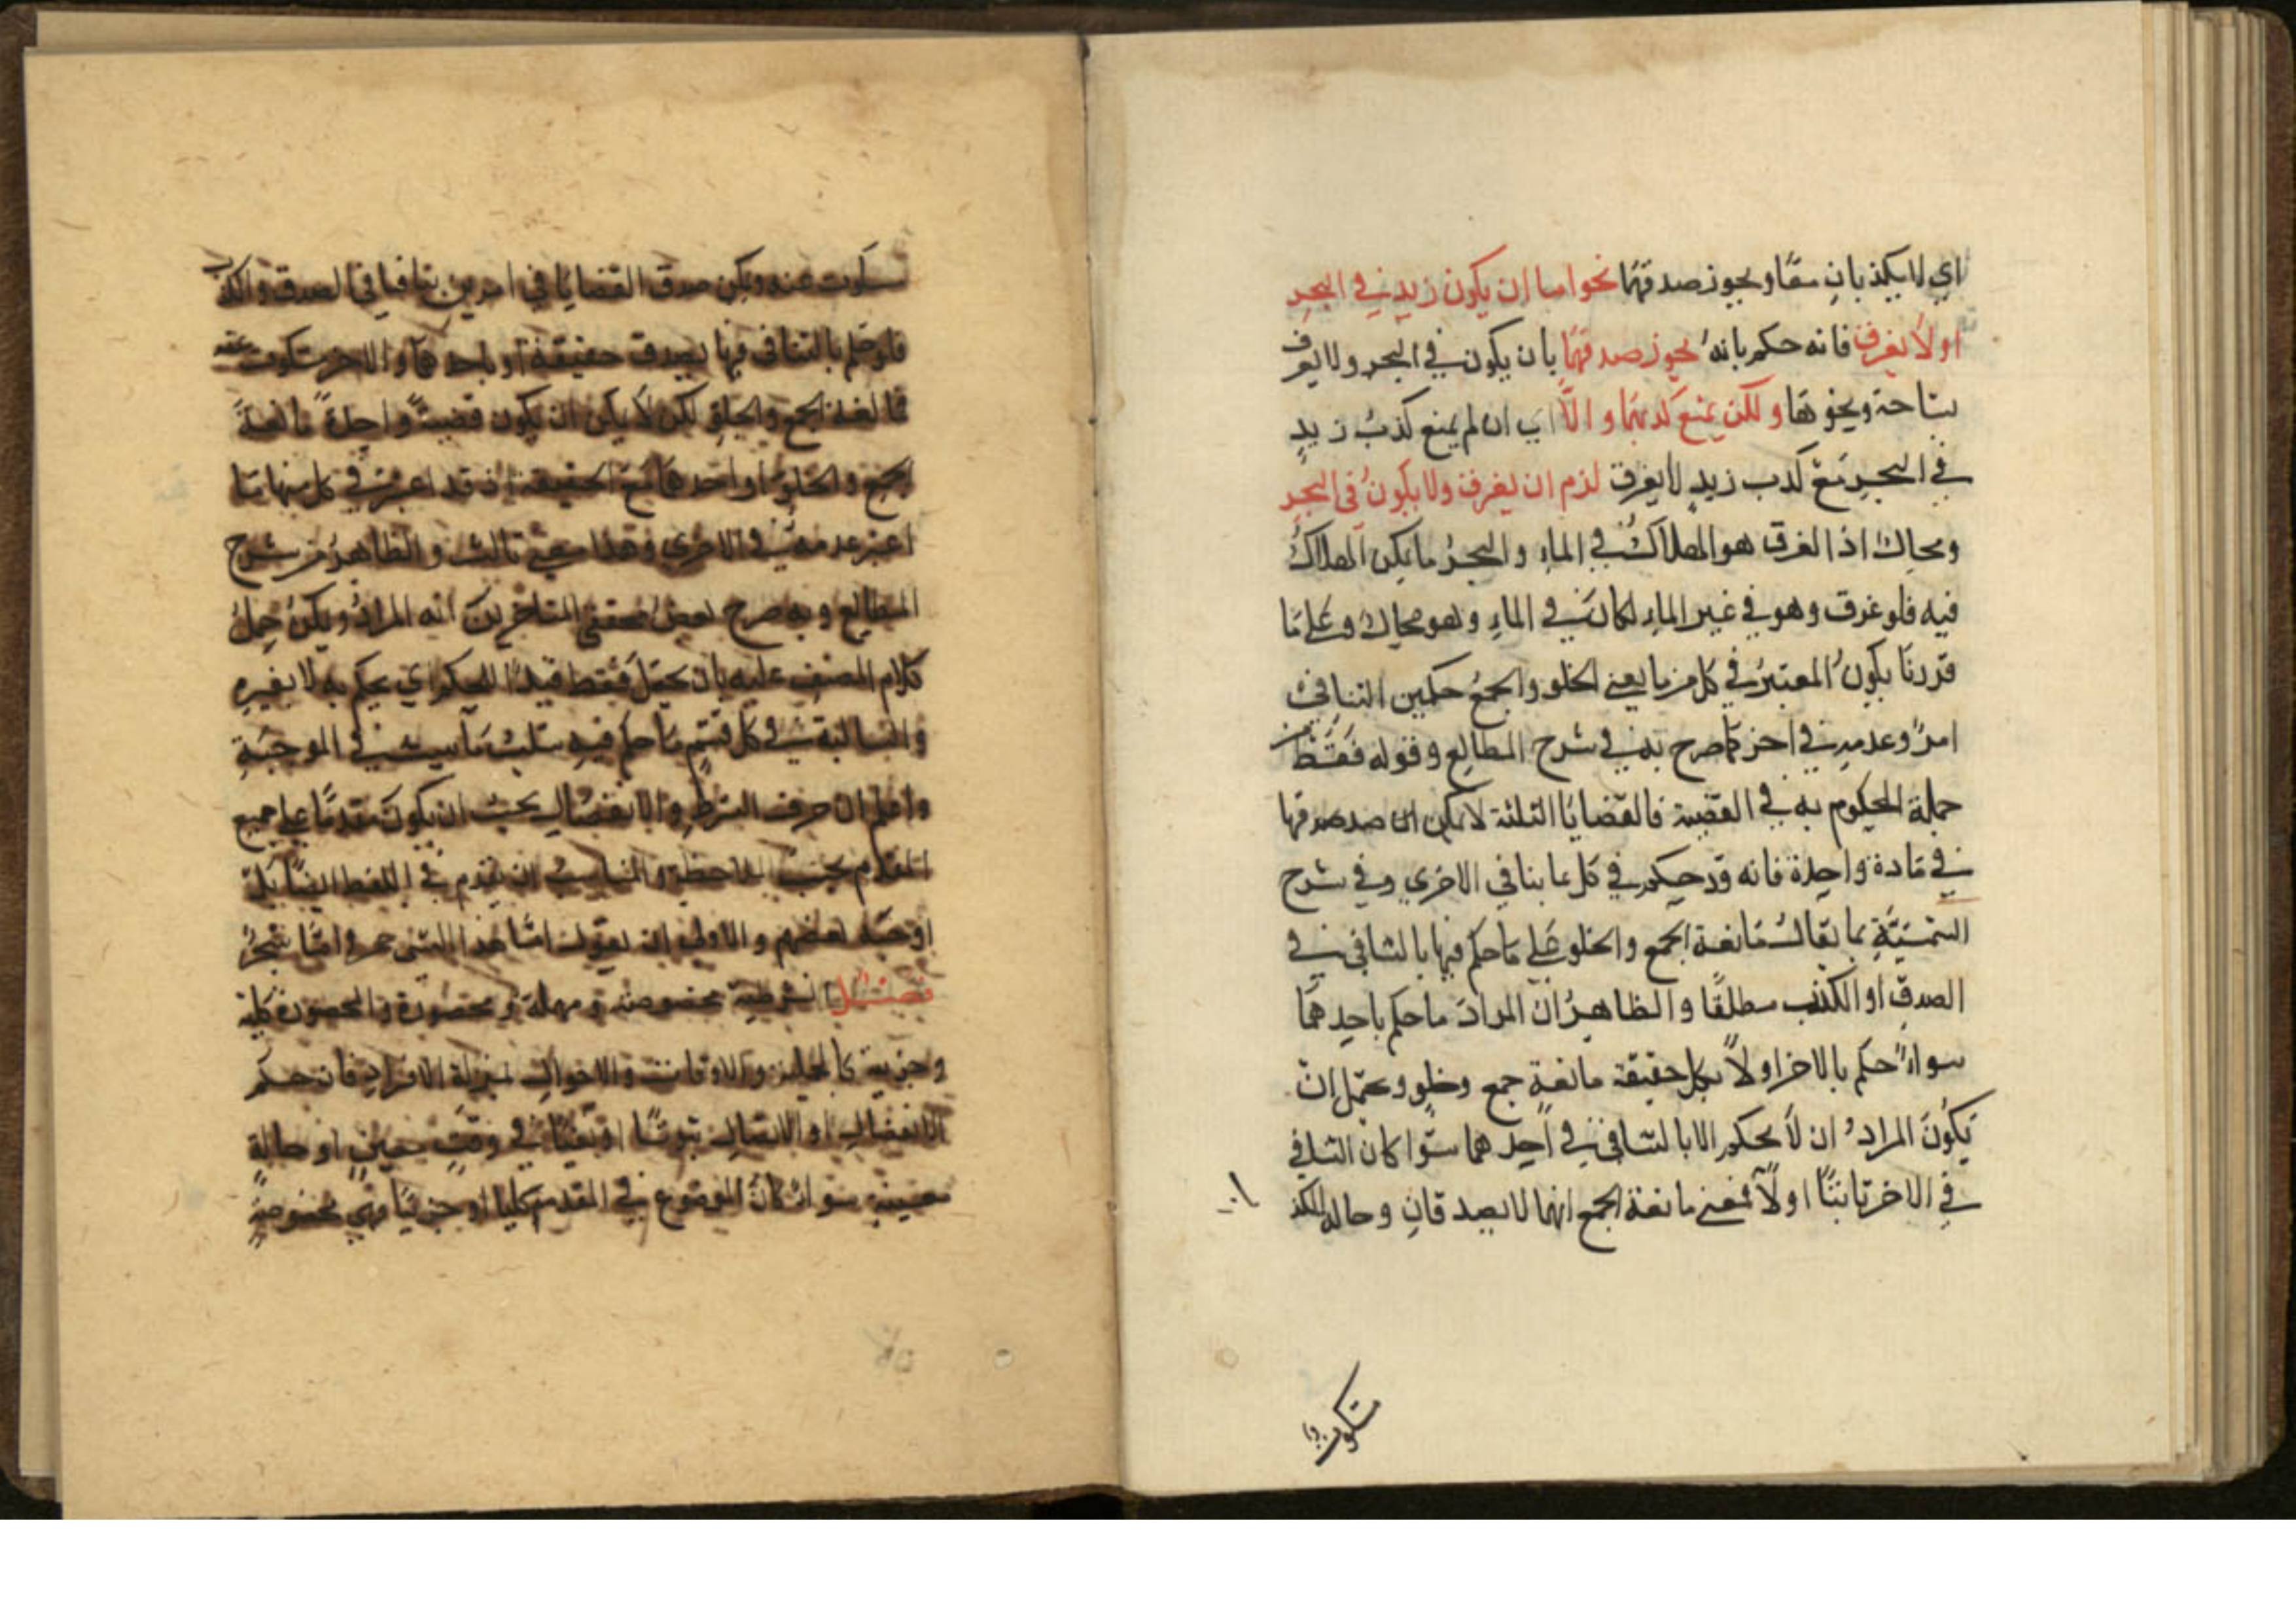 اي لا يكذبان معًا ويجوز صدقهما نحو اما ان يكون زيد في البحر
او لا يغرق فانه حكم بانه يجوز صدقهما بان يكون في البحر ولا يغرق
بسباحة ونحوها ولكن يمنع كذبهما والّا اي ان لم يمنع كذب زيد
في البحر مع كذب زيد لا يغرق لزم ان يغرق ولا يكون في البحر
ومحال اذ الغرق هو الهلاك في الماء والبحر ما يمكن الهلاك
فيه فلو غرق وهو في غير الماء لكان في الماء وهو محال وعلى ما
قررنا يكون المعتبر في كل من مانعي الخلو والجمع حكمين التنافي في
امر وعدمه في اخر كما صرح به في شرح المطالع وقوله فقط من
جملة المحكوم به في القضية فالقضايا الثلثة لا يمكن ان صدقها
في مادة واحدة فانه قد حكم في كل بما ينافي الاخرى وفي شرح
الشمسيّة بما يقال مانعة الجمع والخلو على ما حكم فيها بالتنافي في
الصدق او الكذب مطلقًا والظاهر ان المراد ما حكم باحدهما
سواء حكم بالاخر او لا فكل حقيقة مانعة جمع وخلو ويحتمل ان
يكون المراد ان لا يحكم الا بالتنافي في احدهما سوا كان التنافي
في الاخر ثابتًا او لا فمعنى مانعة الجمع انهما لا يصدقان وحاله الكذ
سكوت
سكوت عنه ويمكن صدق القضايا في امرين يتنافيا في الصدق والكذب
فلو حكم بالتنافي فيها بصدق حقيقة او باحدهما والاخر سكوت عنه
فمانعة الجمع والخلو لكن لا يمكن ان يكون قضية واحدة مانعة
الجمع والخلو او احدهما مع الحقيقة اذ قد اعتبر في كل منها ما
اعتبر عدمه في الاخرى وهذا معنى ثالث والظاهر من شرح
المطالع وبه صرح بعض محققي المتاخرين انه المراد ويمكن حمل
كلام المصنف عليه بان يحتمل فقط قيدًا للحكم اي يحكم به لا بغيره
والسالبة في كل قسم ما حكم فيه بسلب ما اثبت في الموجبة
واعلم ان حرف الشرط والانفصال يجب ان يكون مقدمًا على جميع
المقدم بحسب الملاحظة والمناسب ان يقدم في اللفظ ايضًا بل
اوجبه بعضهم والاولى ان يقول امّا هذا الشيء حجر وامّا شجر
فصل الشرطية مخصوصة ومهملة ومحصورة والمحصورة كلية
وجزئية كالحملية والاوقات والاحوال بمنزلة الافراد فان حكم
الانفصال او الاتصال ثبوتًا او نفيًا في وقت معين او حالة
معينة سواء كان الموضوع في المقدم كليا او جزئيًا فهي مخصوصة